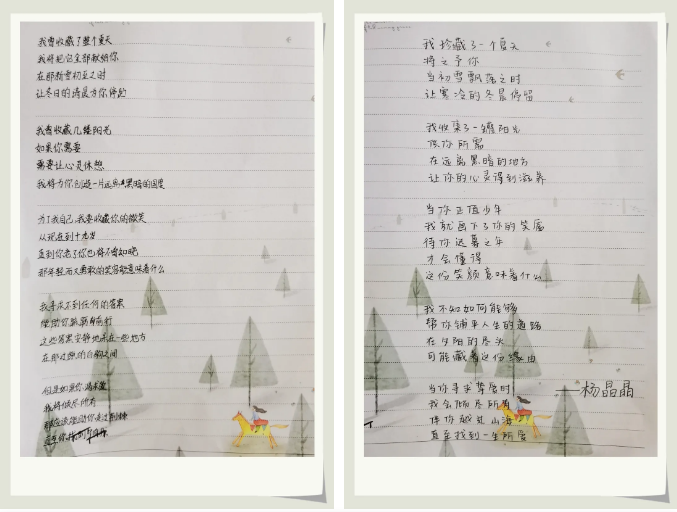 我曾收藏了整个夏天
我将把它全部献给你
在那新雪初至之时
让冬日的清晨为你停留
我曾收藏几缕阳光
如果你需要
需要让心灵休憩
我将为你创造一片远离黑暗的国度
为了我自己,我要收藏你的微笑
从现在到十九岁
直到你老了你也将不曾知晓
那年轻而又勇敢的笑容意味着什么
我寻求不到任何的答案
这些答案安静地呆在一些地方
但是如果你
我将倾尽所有
我珍藏了一个夏天
将之予你
当初雪飘落之时
让寒冷的冬晨停留
我收集了一罐阳光
供你所需
在远离黑暗的地方
让你的心灵得到滋养
当你正值少年
我就画下了你的笑魇
待你迟暮之年
才会懂得
这份笑颜意味着什么
我不知如何能够
帮你铺平人生的道路
在夕阳的尽头
可能藏着这份缘由
当你寻求
我会倾尽所有
伴你越过山海
直至找到一生所爱
——杨晶晶